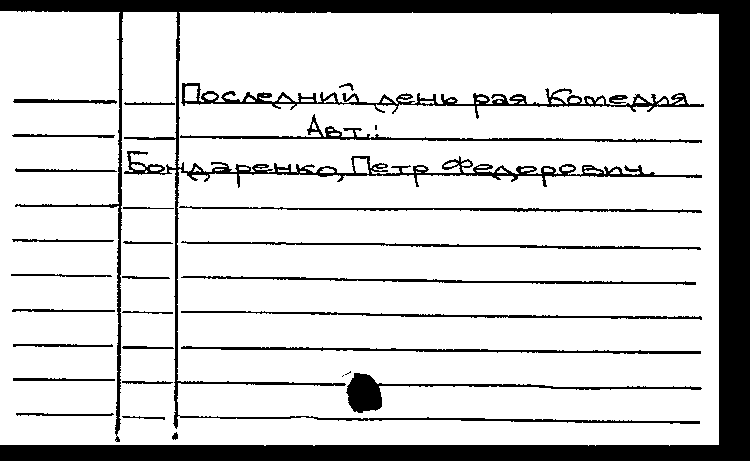 Последний день рая. Комедия
Авт.:
Бондаренко, Петр Федорович.